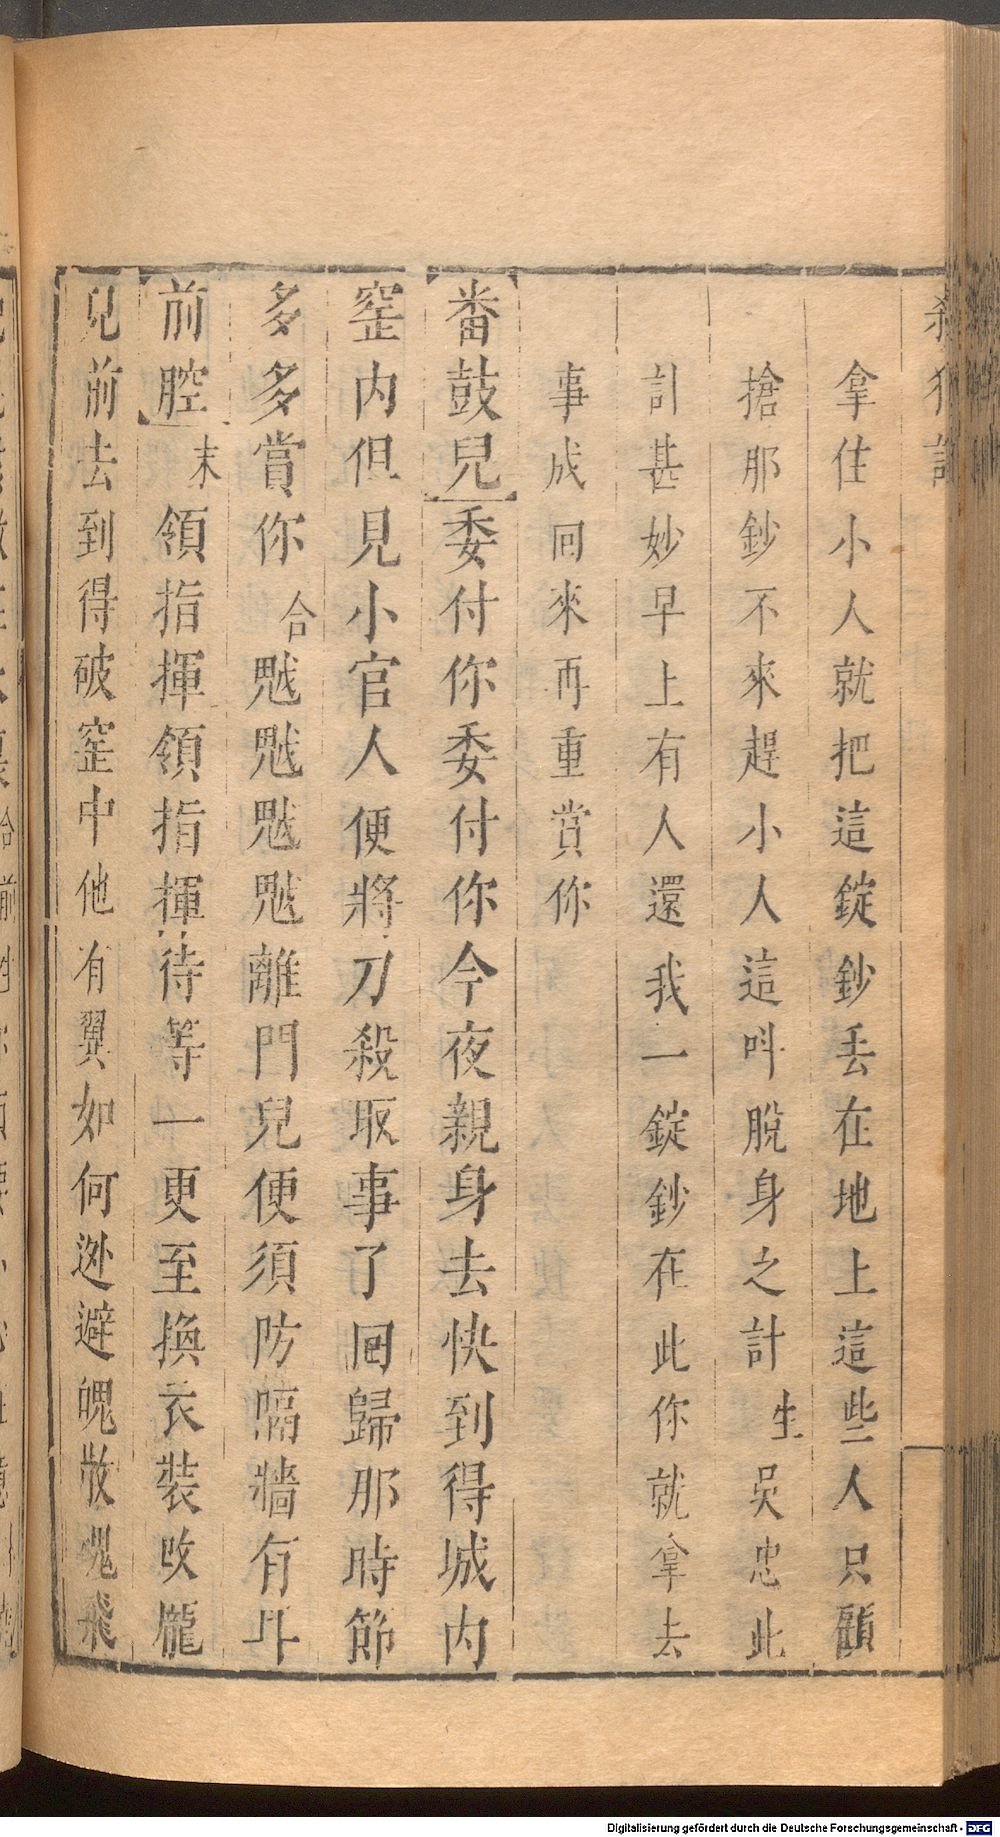 拿住小人就把這錠鈔丟在地上這些人只顧
搶那鈔不來趕小人這叫脫身之計生吳忠此
計甚妙早上有人還我一錠鈔在此你就拿去
事成囘來再重賞你
番鼓兒委付你委付你今夜親身去快到得城內
窰內但見小官人便將刀殺取事了囘歸那時節
多多賞你合魆魆魆魆離門兒便須防隔牆有耳
前腔末領指揮領指揮待等一更至換衣裝改龐
兒前去到得破窰中他有翼如何迯避魄散魂飛
Digitalisierung gefördert durch die Deutsche Forschungsgemeinschaft - DFG